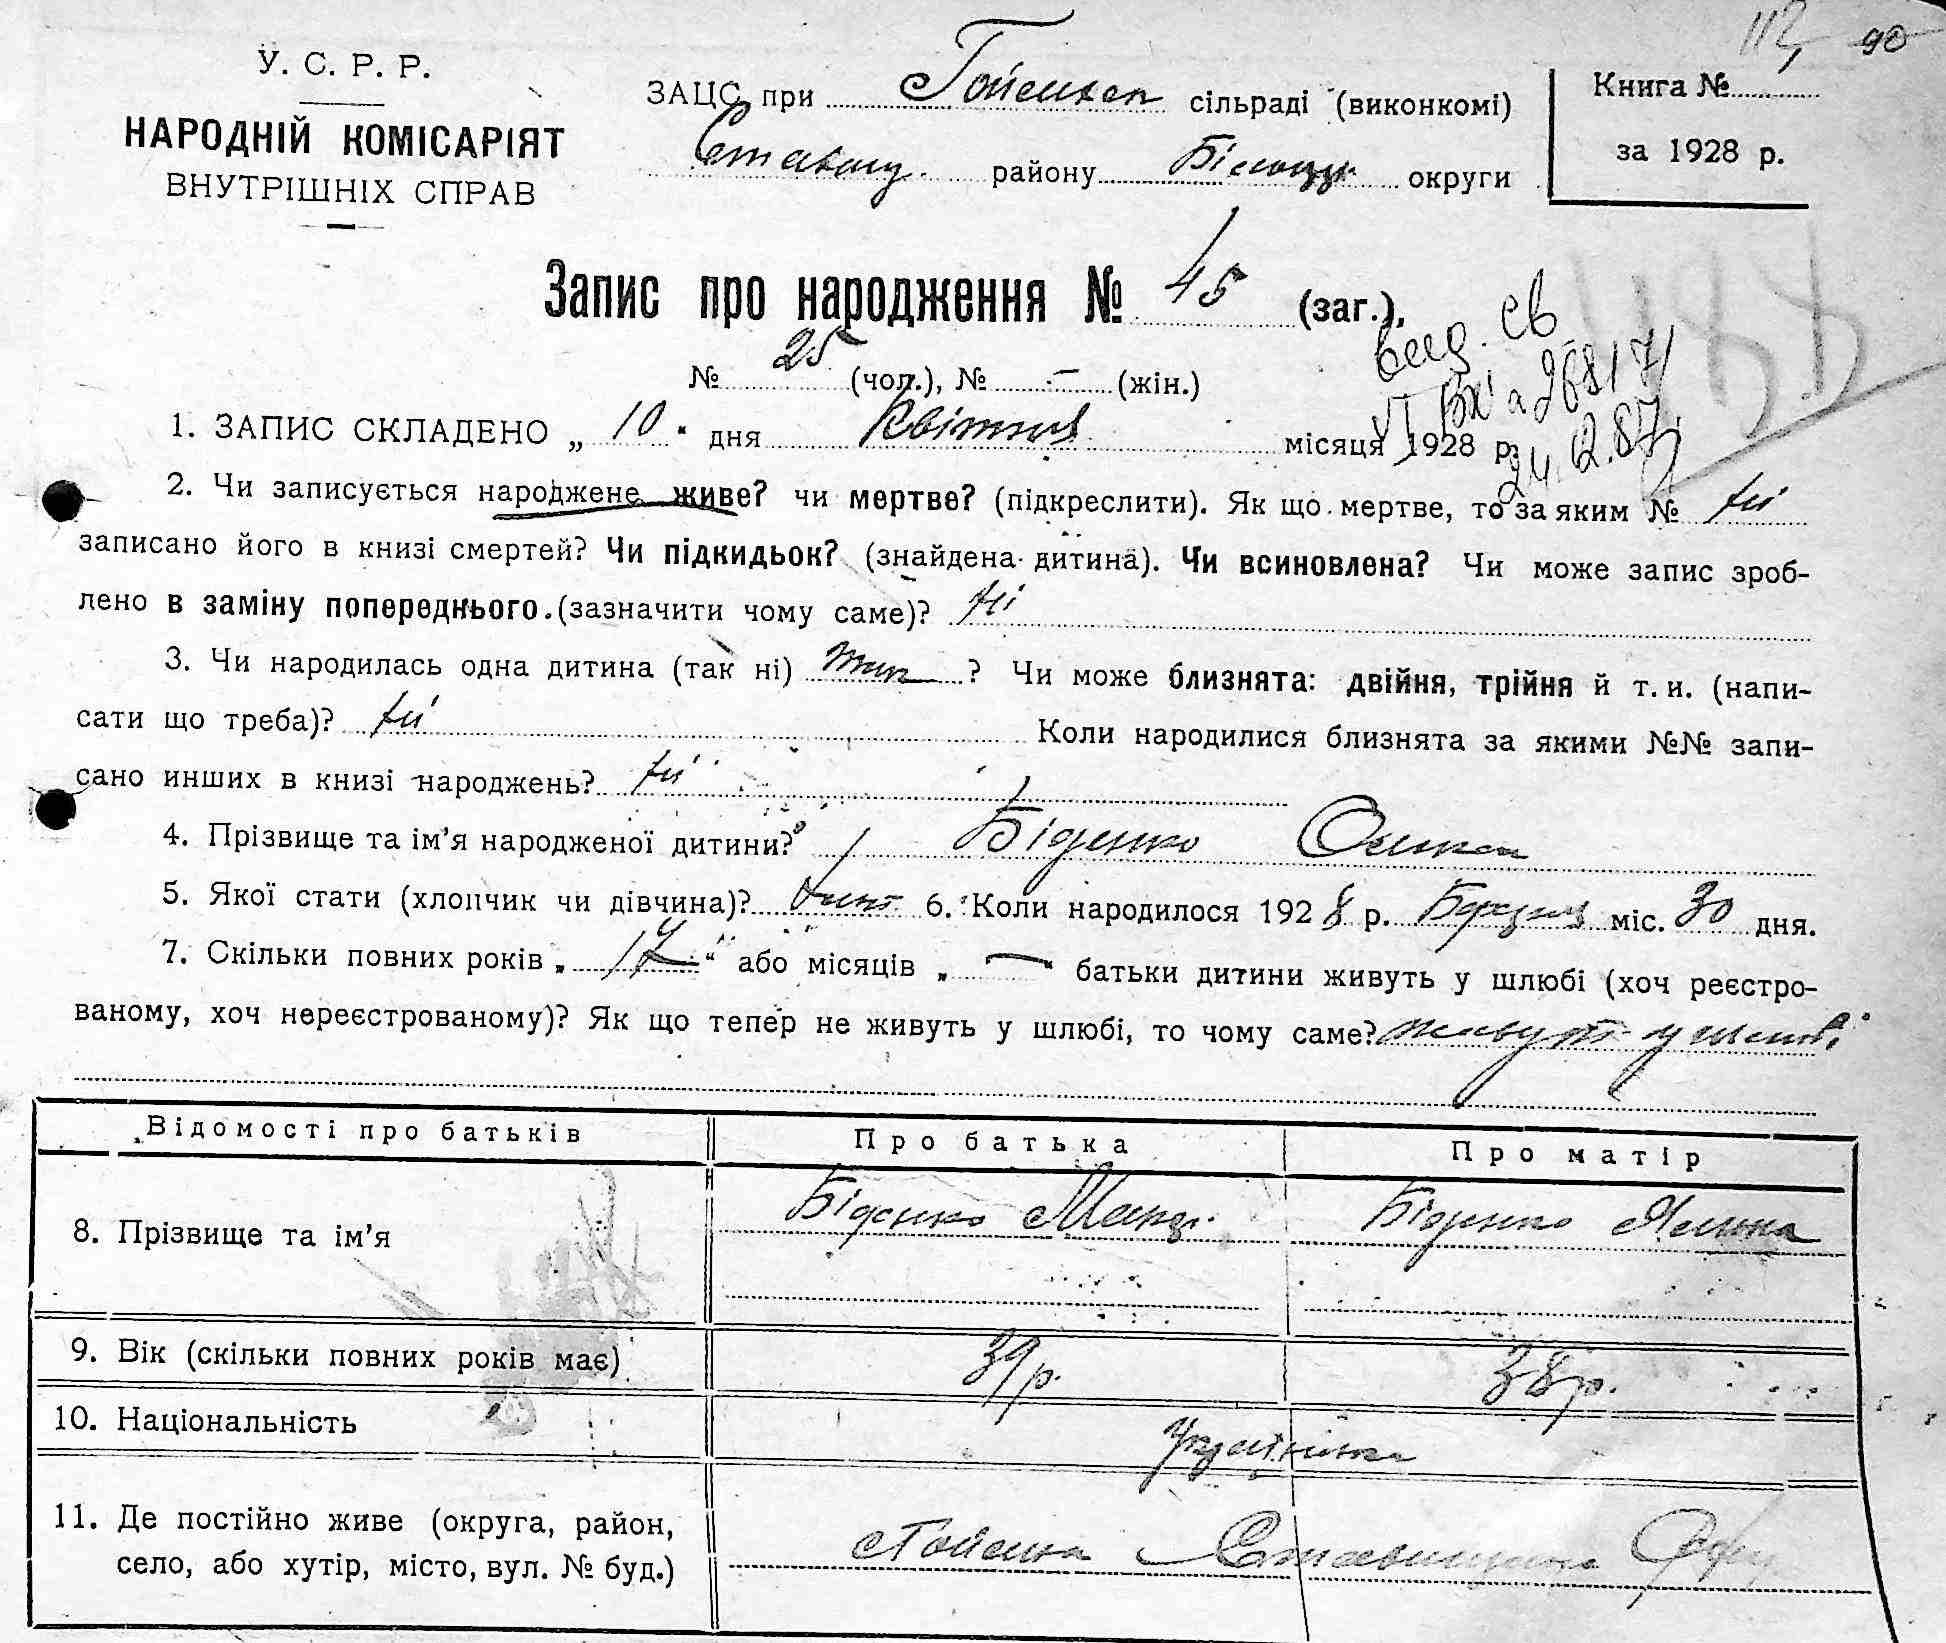 У. С. Р. Р.
НАРОДНІЙ КОМІСАРІЯТ
ВНУТРІШНІХ СПРАВ
ЗАЦС при сільраді (виконкомі)
району округи
Книга №
за 1928 р.
112 90
Запис про народження № 45 (заг.),
№ 25 (чол.), № – (жін.)
вид. св
24.12.87
1. ЗАПИС СКЛАДЕНО „ 10 “ дня Квітня місяця 1928 р.
2. Чи записується народжене живе? чи мертве? (підкреслити). Як що мертве, то за яким № ні
записано його в книзі смертей? Чи підкидьок? (знайдена дитина). Чи всиновлена? Чи може запис зроб-
лено в заміну попереднього (зазначити чому саме)? ні
3. Чи народилась одна дитина (так ні) так ? Чи може близнята: двійня, трійня й т. и. (напи-
сати що треба)? ні Коли народилися близнята за якими №№ запи-
сано инших в книзі народжень? ні
4. Прізвище та ім’я народженої дитини? Біденко
5. Якої стати (хлопчик чи дівчина)? 6. Коли народилося 1928 р. Березня міс. 30 дня.
7. Скільки повних років „ 17 “ або місяців „ — “ батьки дитини живуть у шлюбі (хоч реєстро-
ваному, хоч нереєстрованому)? Як що тепер не живуть у шлюбі, то чому саме? живуть у шлюбі
Відомості про батьків Про батька Про матір
8. Прізвище та ім’я Біденко Біденко
9. Вік (скільки повних років має) 39 р. 38 р.
10. Національність Українка
11. Де постійно живе (округа, район,
село, або хутір, місто, вул. № буд.)